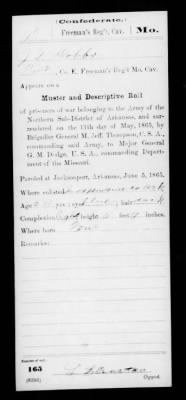 (Confederate.)
Freeman's Reg't, Cav. Mo.
Co. E, Freeman's Reg't Mo. Cav.
Appears on a
Muster and Descriptive Roll
of prisoners of war belonging to the Army of the
Northern Sub-District of Arkansas, and sur-
rendered on the 11th day of May, 1865, by
Brigadier General M. Jeff. Thompson, C. S. A.,
commanding said Army, to Major General
G. M. Dodge, U. S. A., commanding Depart-
ment of the Missouri.
Paroled at Jacksonport, Arkansas, June 5, 1865.
Where enlisted
Age yrs; eyes blue; hair dark
Complexion light; height feet inches.
Where born
Remarks:
Number of roll:
165
Copyist.